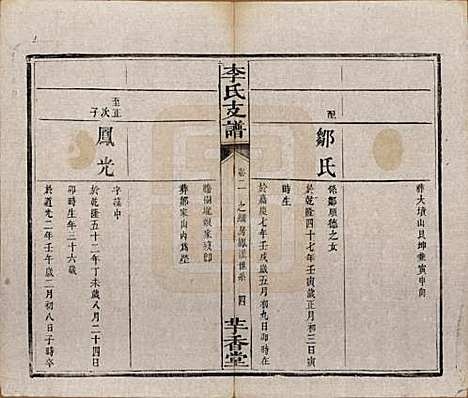 葬大墳山艮坤兼寅申向
配
鄒氏
係鄒順德之女
於乾隆四十七年壬寅歲正月初三日寅
時生
於嘉慶七年壬戌歲五月初九日卯時在
李氏支譜
卷二
四
芉香堂
葬鄒家山內為塋
至正
次子
鳳光
字漢中
於乾隆五十二年丁未歲八月二十四日
卯時生年三十六歲
於道光二年壬午歲二月初八日子時卒